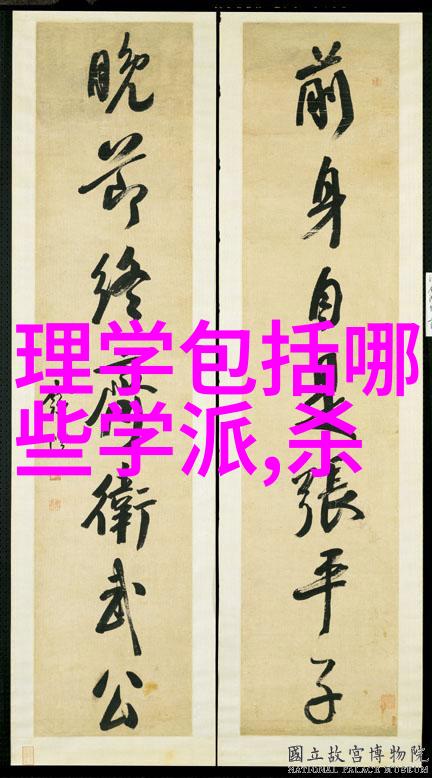 前身自是張平子
晚節終齊衛武公
理学包括哪
些学派,杀
國立故宮博物院
NATIONAL PALACE MUSEUM